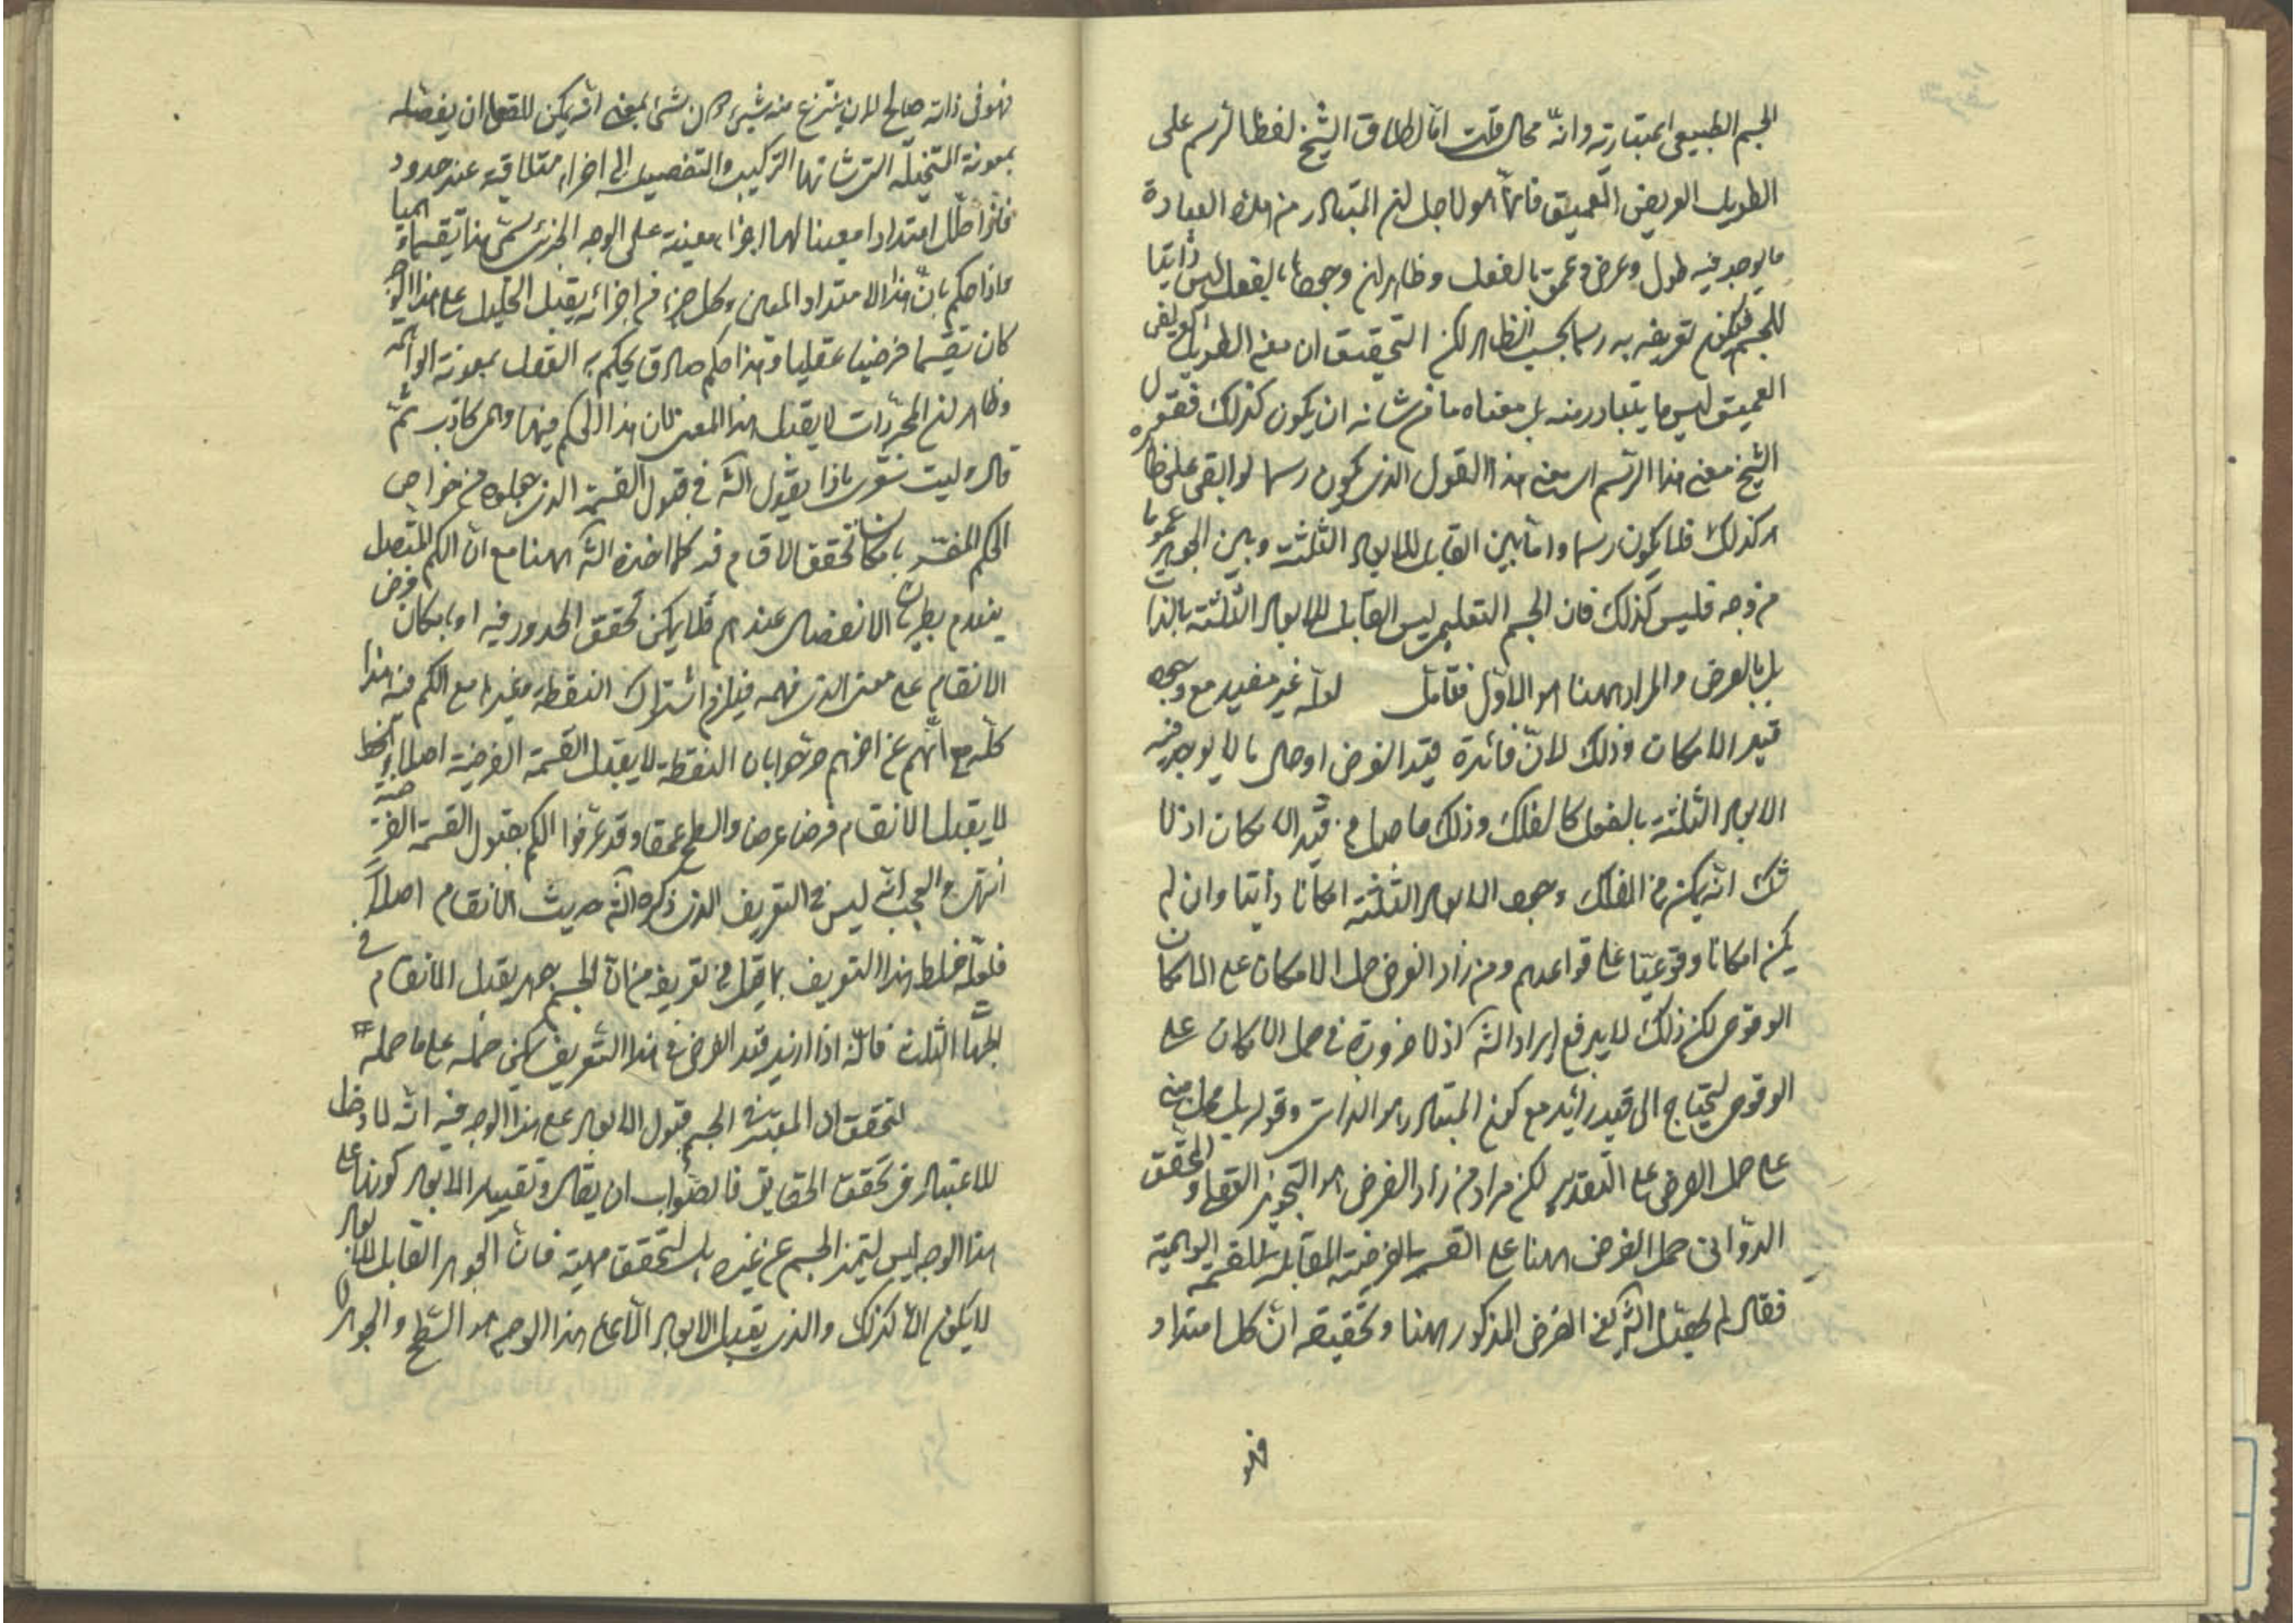 الجسم الطبيعى وانه محال قلت اما اطلاق الشيخ لفظ الرسم على
الطويل العريض العميق فانما هو لاجل ان المتبادر من هذه العبارة
ما يوجد فيه طول وعرض وعمق بالفعل وظاهر ان وجودها بالفعل ليس ذاتيا
للجسم فيكون تعريفه به رسما بحسب الظاهر لكن التحقيق ان معنى الطويل العريض
العميق ليس ما يتبادر منه بل معناه ما من شانه ان يكون كذلك فقول
الشيخ معنى هذا الرسم اى معنى هذا القول الذى يكون رسما لو ابقى على ظاهره
هو كذلك فلا يكون رسما واما بين القابل للابعاد الثلثة وبين الجوهر عموما
من وجه فليس كذلك فان الجسم التعليمى ليس القابل للابعاد الثلثة بالذات
بل بالعرض والمراد ههنا هو الاول فتامل لعله غير مفيد مع وجود
قيد الامكان وذلك لان فائدة قيد الفرض ادخال ما لا يوجد فيه
الابعاد الثلثة بالفعل كالفلك وذلك حاصل من قيد الامكان اذ لا
شك انه يمكن فى الفلك وجود الابعاد الثلثة امكانا ذاتيا وان لم
يكن امكانا وقوعيا على قواعدهم ومن زاد الفرض حمل الامكان على الامكان
الوقوعى لكن ذلك لا يدفع ايراد الش اذ لا ضرورة فى حمل الامكان على
الوقوعى ليحتاج الى قيد زائد مع كون المتبادر هو الذاتى وقوله
على حمل الفرض على التقدير لكن مراد من زاد الفرض هو التجويز العقلى والمحقق
الدوانى حمل الفرض ههنا على القسمة الفرضية المقابلة للقسمة الوهمية
فقال لم الش معنى الفرض المذكور ههنا وتحقيقه ان كل امتداد
فهو
فهو فى ذاته صالح لان ينتزع منه شىء دون شىء بمعنى انه يمكن للعقل ان يفصله
بمعونة المتخيلة التى شانها التركيب والتفصيل الى اجزاء متلاقية عند حدود
فاذا امتدادا معينا لها اجزاء معينة على الوجه الجزئى سمى هذا تقسيما وهميا
واذا حكم بان هذا الامتداد المعين وكل جزء من اجزائه يقبل التحليل على هذا الوجه
كان تقسيما فرضيا عقليا وهذا حكم صادق يحكم به العقل بمعونة الواهمة
وظاهر ان المجردات لا يقبل هذا المعنى فان هذا الحكم فيها وهمى كاذب ثم
قال وليت شعرى ماذا يقول الش فى قبول القسمة الذى جعلوه من خواص
الكم المفسر بامكان تحقق الاقسام فيه كما اخذه الش ههنا مع ان الكم المتصل
ينعدم بطريان الانفصال عندهم فلا يمكن تحقق الحدود فيه او بامكان فرض
الانقسام على معنى الذى فهمه فيلزم اشتراك النقطة وغيرها مع الكم فيه هذا
كله مع انهم عن اخرهم صرحوا بان النقطة لا يقبل القسمة الفرضية اصلا والخط
لا يقبل الانقسام فرضا عرضا والسطح عمقا وقد عرفوا الكم بقبول القسمة الفرضية
انتهى والعجب انه ليس فى التعريف الذى ذكره الش حديث الانقسام اصلا
فلعله خلط هذا التعريف بما قيل فى تعريفه من ان الجسم جوهر يقبل الانقسام فى
الجهات الثلث فانه اذا اريد قيد الفرض فى هذا التعريف يمكن حمله على ما حمله
لتحقق ان المعتبر فى الجسم قبول الابعاد على هذا الوجه فيه انه لا دخل
للاعتبار فى تحقق الحقايق فالصواب ان يقال وتقييد الابعاد كونها على
هذا الوجه ليس لتميز الجسم عن غيره بل لتحقق مهيته فان الجوهر القابل للابعاد
لا يكون الا كذلك والذى يقبل الابعاد لا على هذا الوجه هو السطح والجوهر